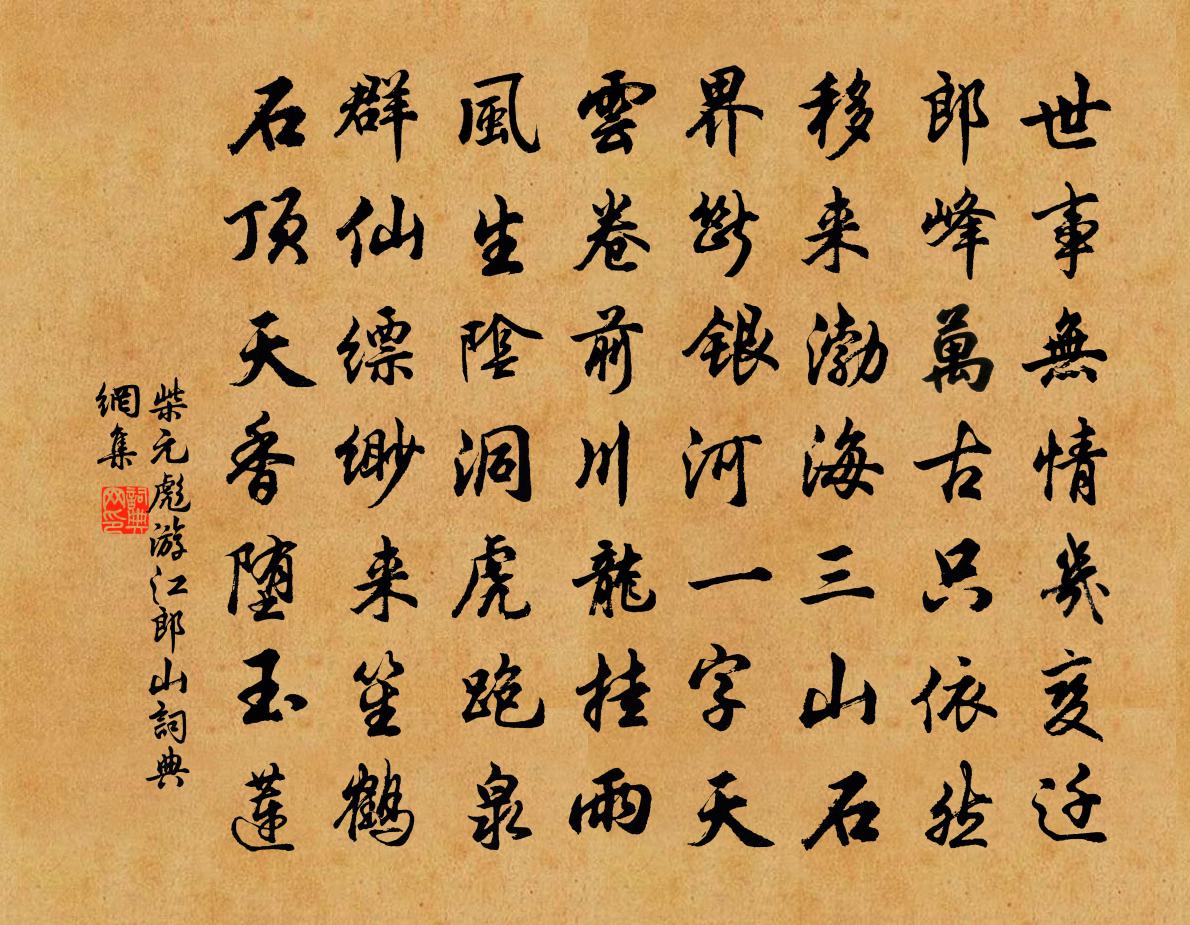 世事無情幾变迁
郎峰萬古只依然
移来渤海三山石
界断銀河一字天
雲卷前川龍挂雨
風生陰洞虎跑泉
群仙缥缈来笙鶴
石顶天香堕玉蓮
柴元彪游江郎山詞典
網集
詞典
网印